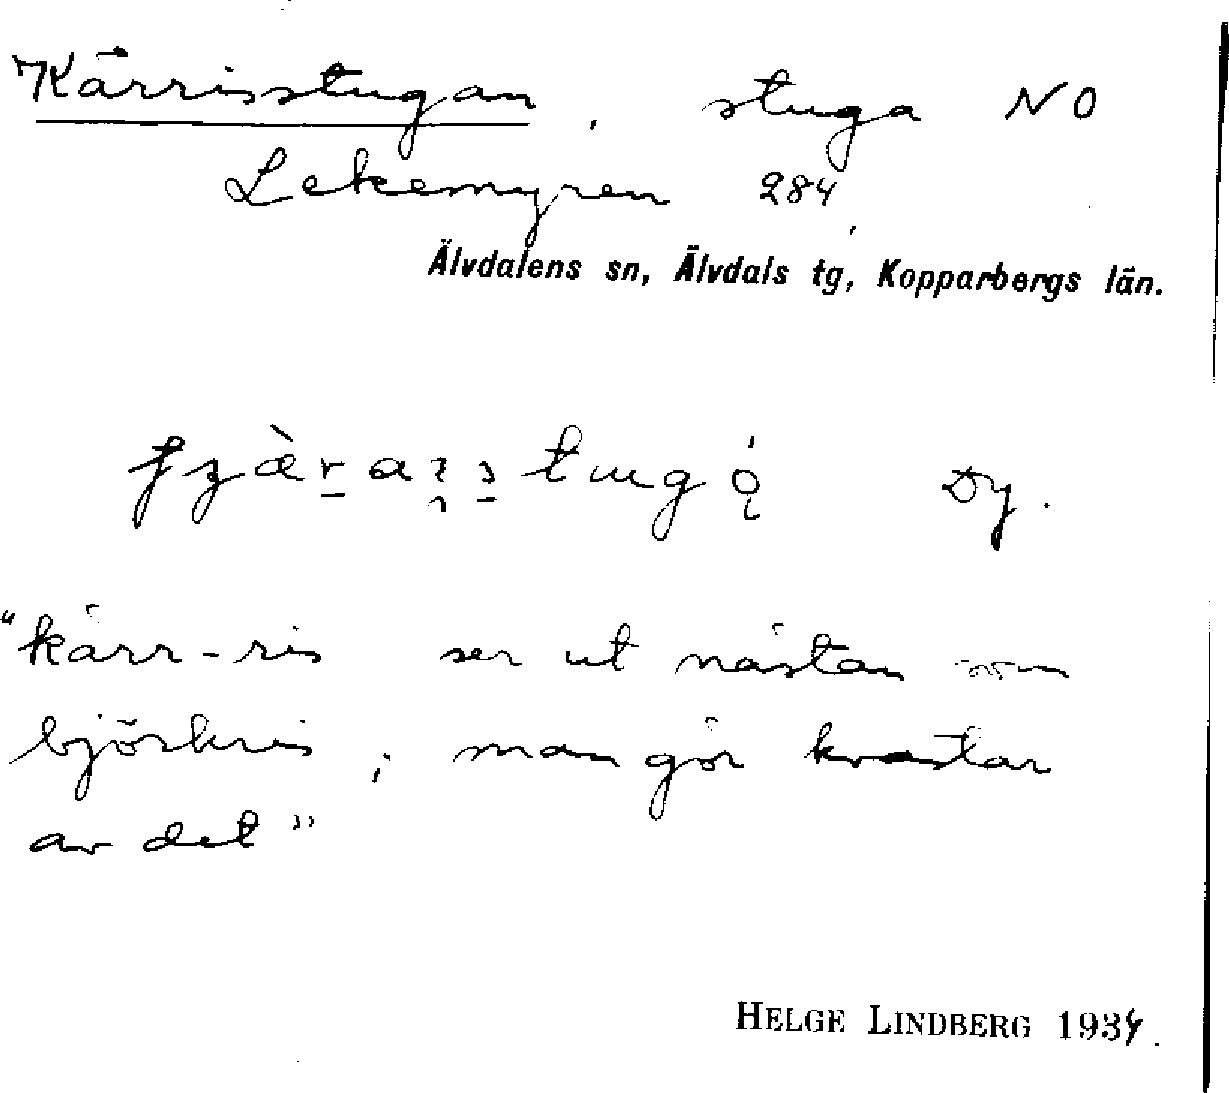 Kärrisstugan, stuga NO
Lekemyren 284,
Älvdalens sn, Älvdals tg, Kopparbergs län.
Dy.
"kärr-ris ser ut nästan som
björkris, man gör kvastar
av det"
HELGE LINDBERG 1934.